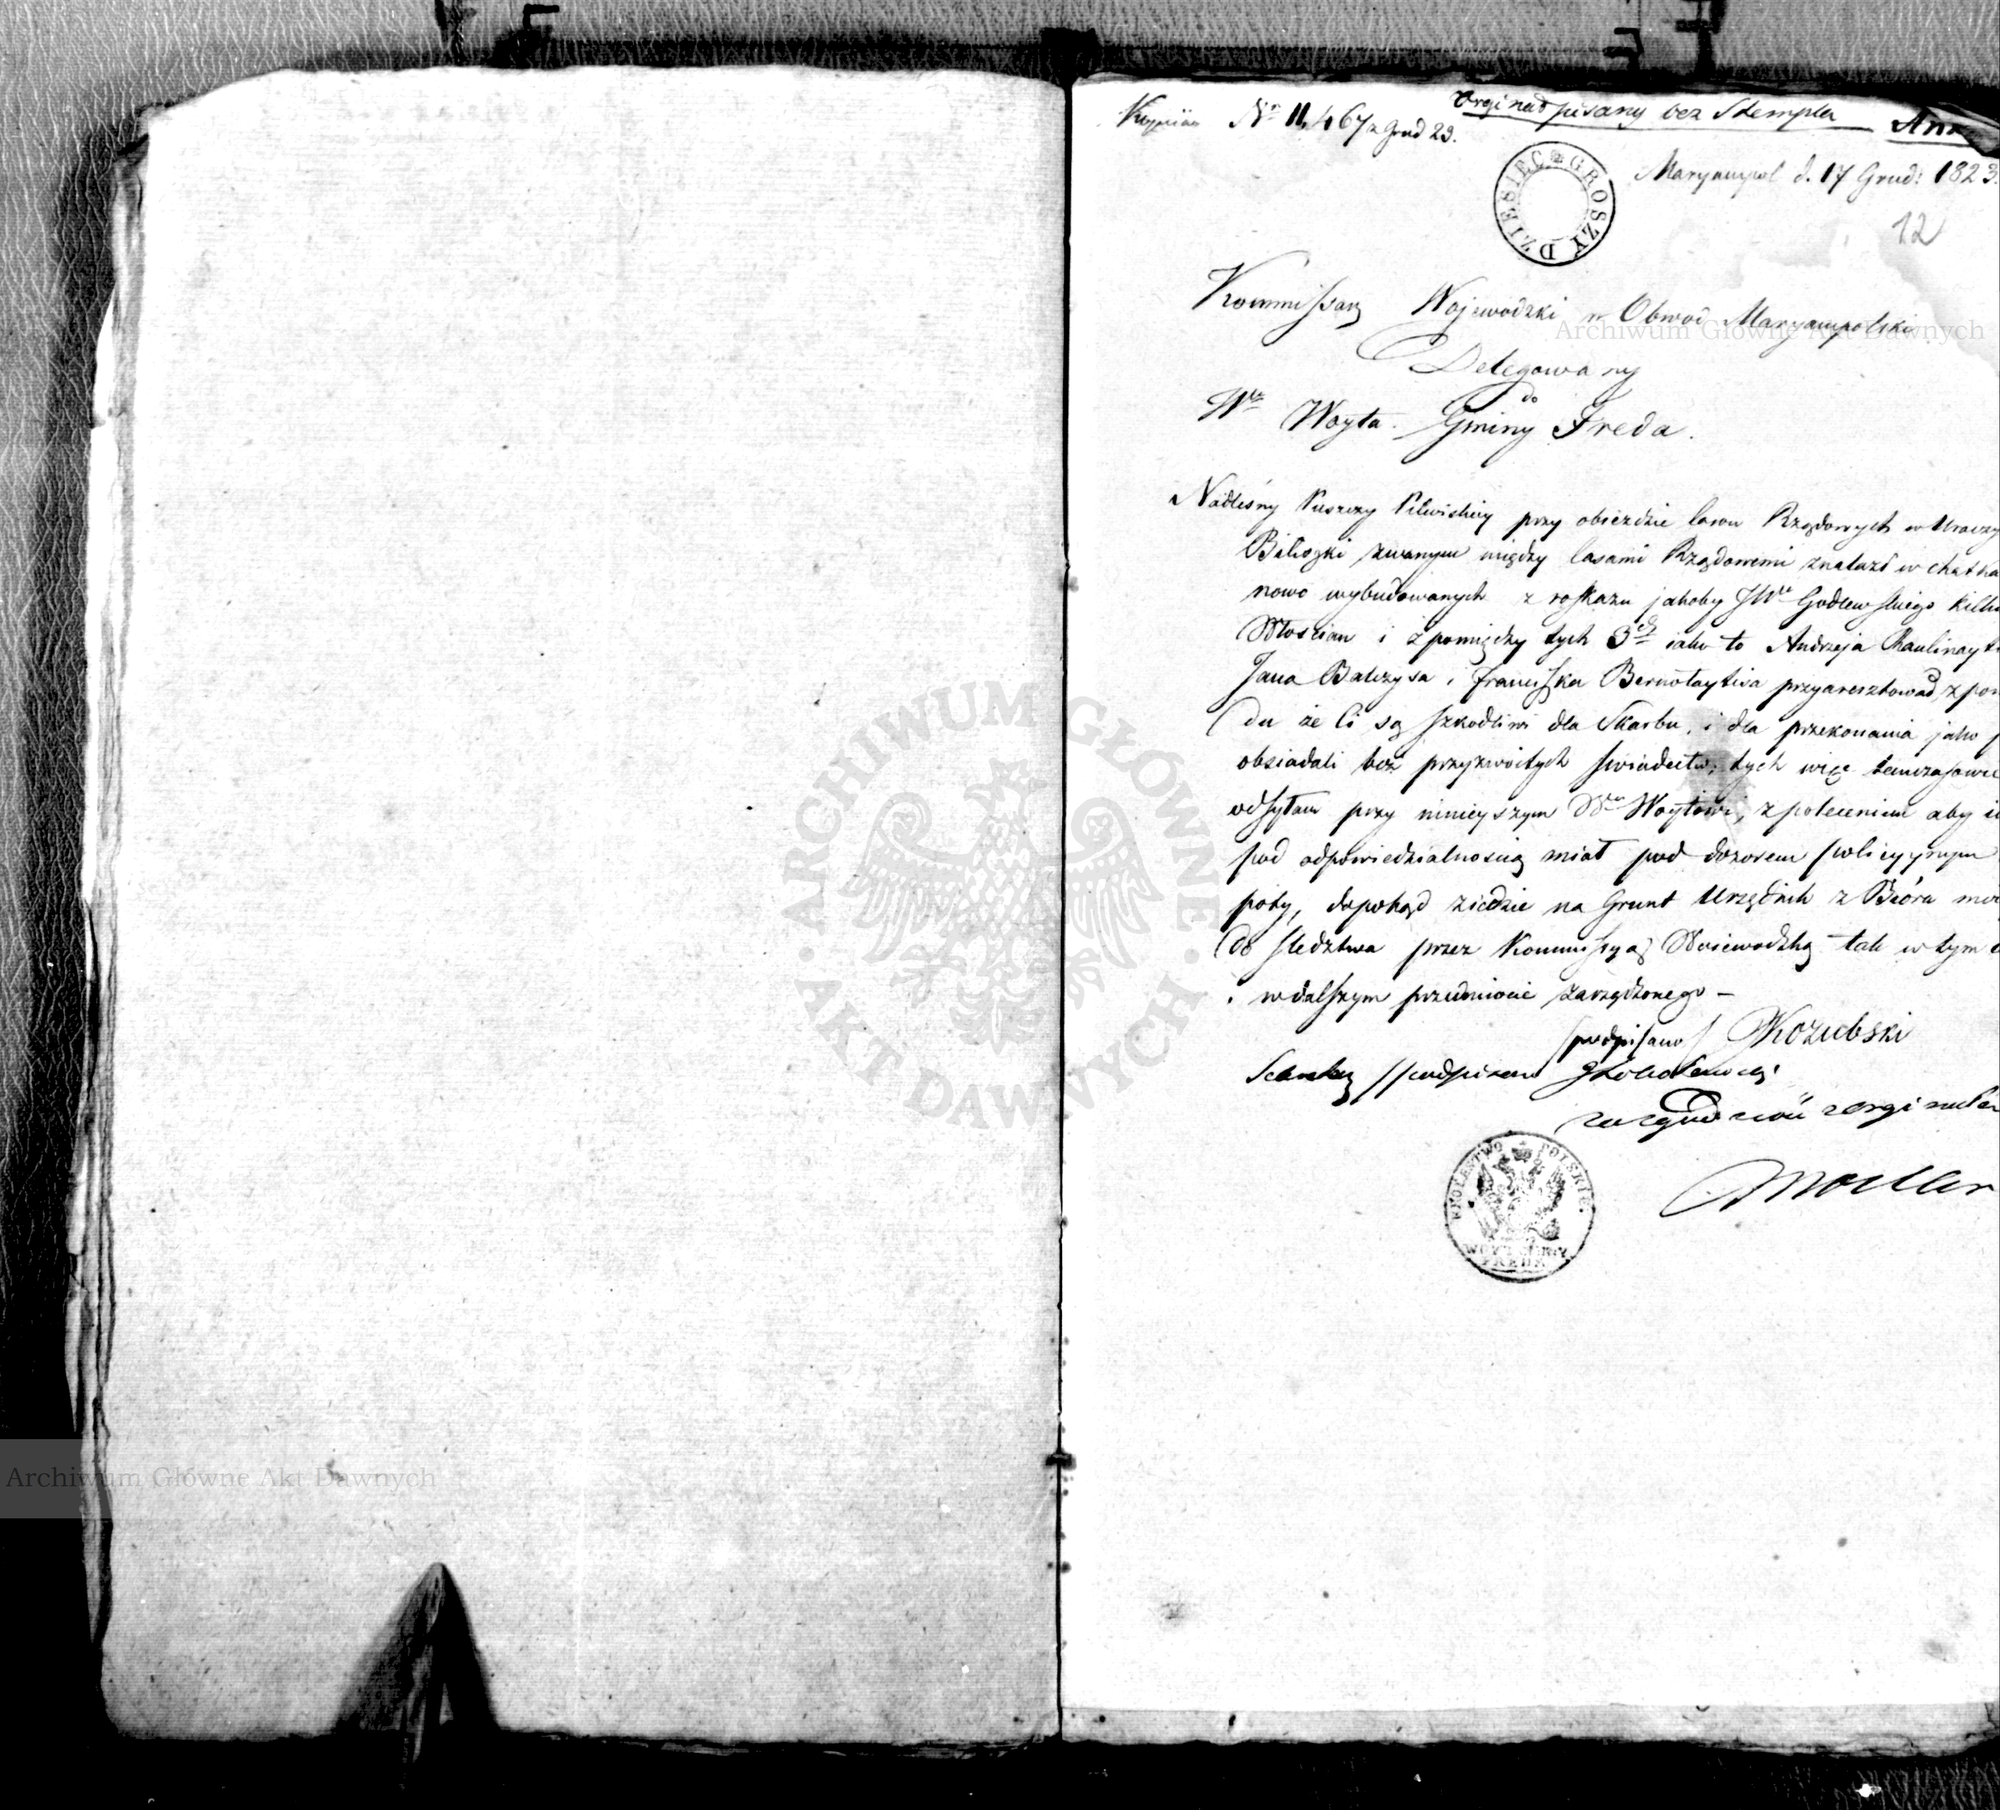 Kopiia Nr 11,467 z Grud 23.
Orginał pisany bez Stempla
Ann
DZIESIĘC GROSZY
Maryampol d. 17 Grud: 1823.
12
Kommissarz Wojewodzki w Obwod Maryampolski
Delegowany
do
Wgo Woyta Gminy Freda.
Nadleśny Puszczy Pilwiskiey przy obieździe lasow Rządowych w Uroczy
zwanym między lasami Rządowemi znalazł w chatka
nowo wybudowanych z roskazu jakoby JWo Godlewskiego kilku
Włoscian i z pomiędzy tych 3ch iako to Andrzeja Paulinayt
Jana Balczysa i Franciszka Bernotaytisa przyaresztował, z pow
du że Ci są szkodliwi dla Skarbu, i dla przekonania jako
obsiadali bez przyzwoitych swiadectw; tych więc tymczasowie
odsyłam przy ninieyszym Wmu Woytowi, z poleceniem aby ic
pod odpowiedzialnoscią miał pod dozorem policyynym
poty, dopokąd ziedzie na Grunt Urzędnik z Bióra mo
do sledztwa przez Kommissyą Woiewodzką tak w tym
i w dalszym przedmiocie zarządzonego –
podpisano Kozubski
Sekretarz podpisano
za zgodność z orginałem
KROLESTWO POLSKIE.
WOYT GMINY
FREDA
ARCHIWUM GŁÓWNE
AKT DAWNYCH
Archiwum Główne Akt Dawnych
Archiwum Główne Akt Dawnych